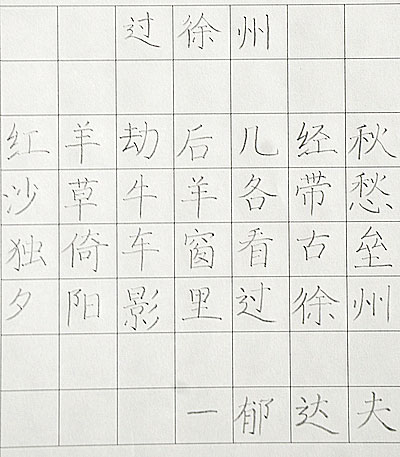 过徐州
红羊劫后几经秋
沙草牛羊各带愁
独倚车窗看古垒
夕阳影里过徐州
一郁达夫